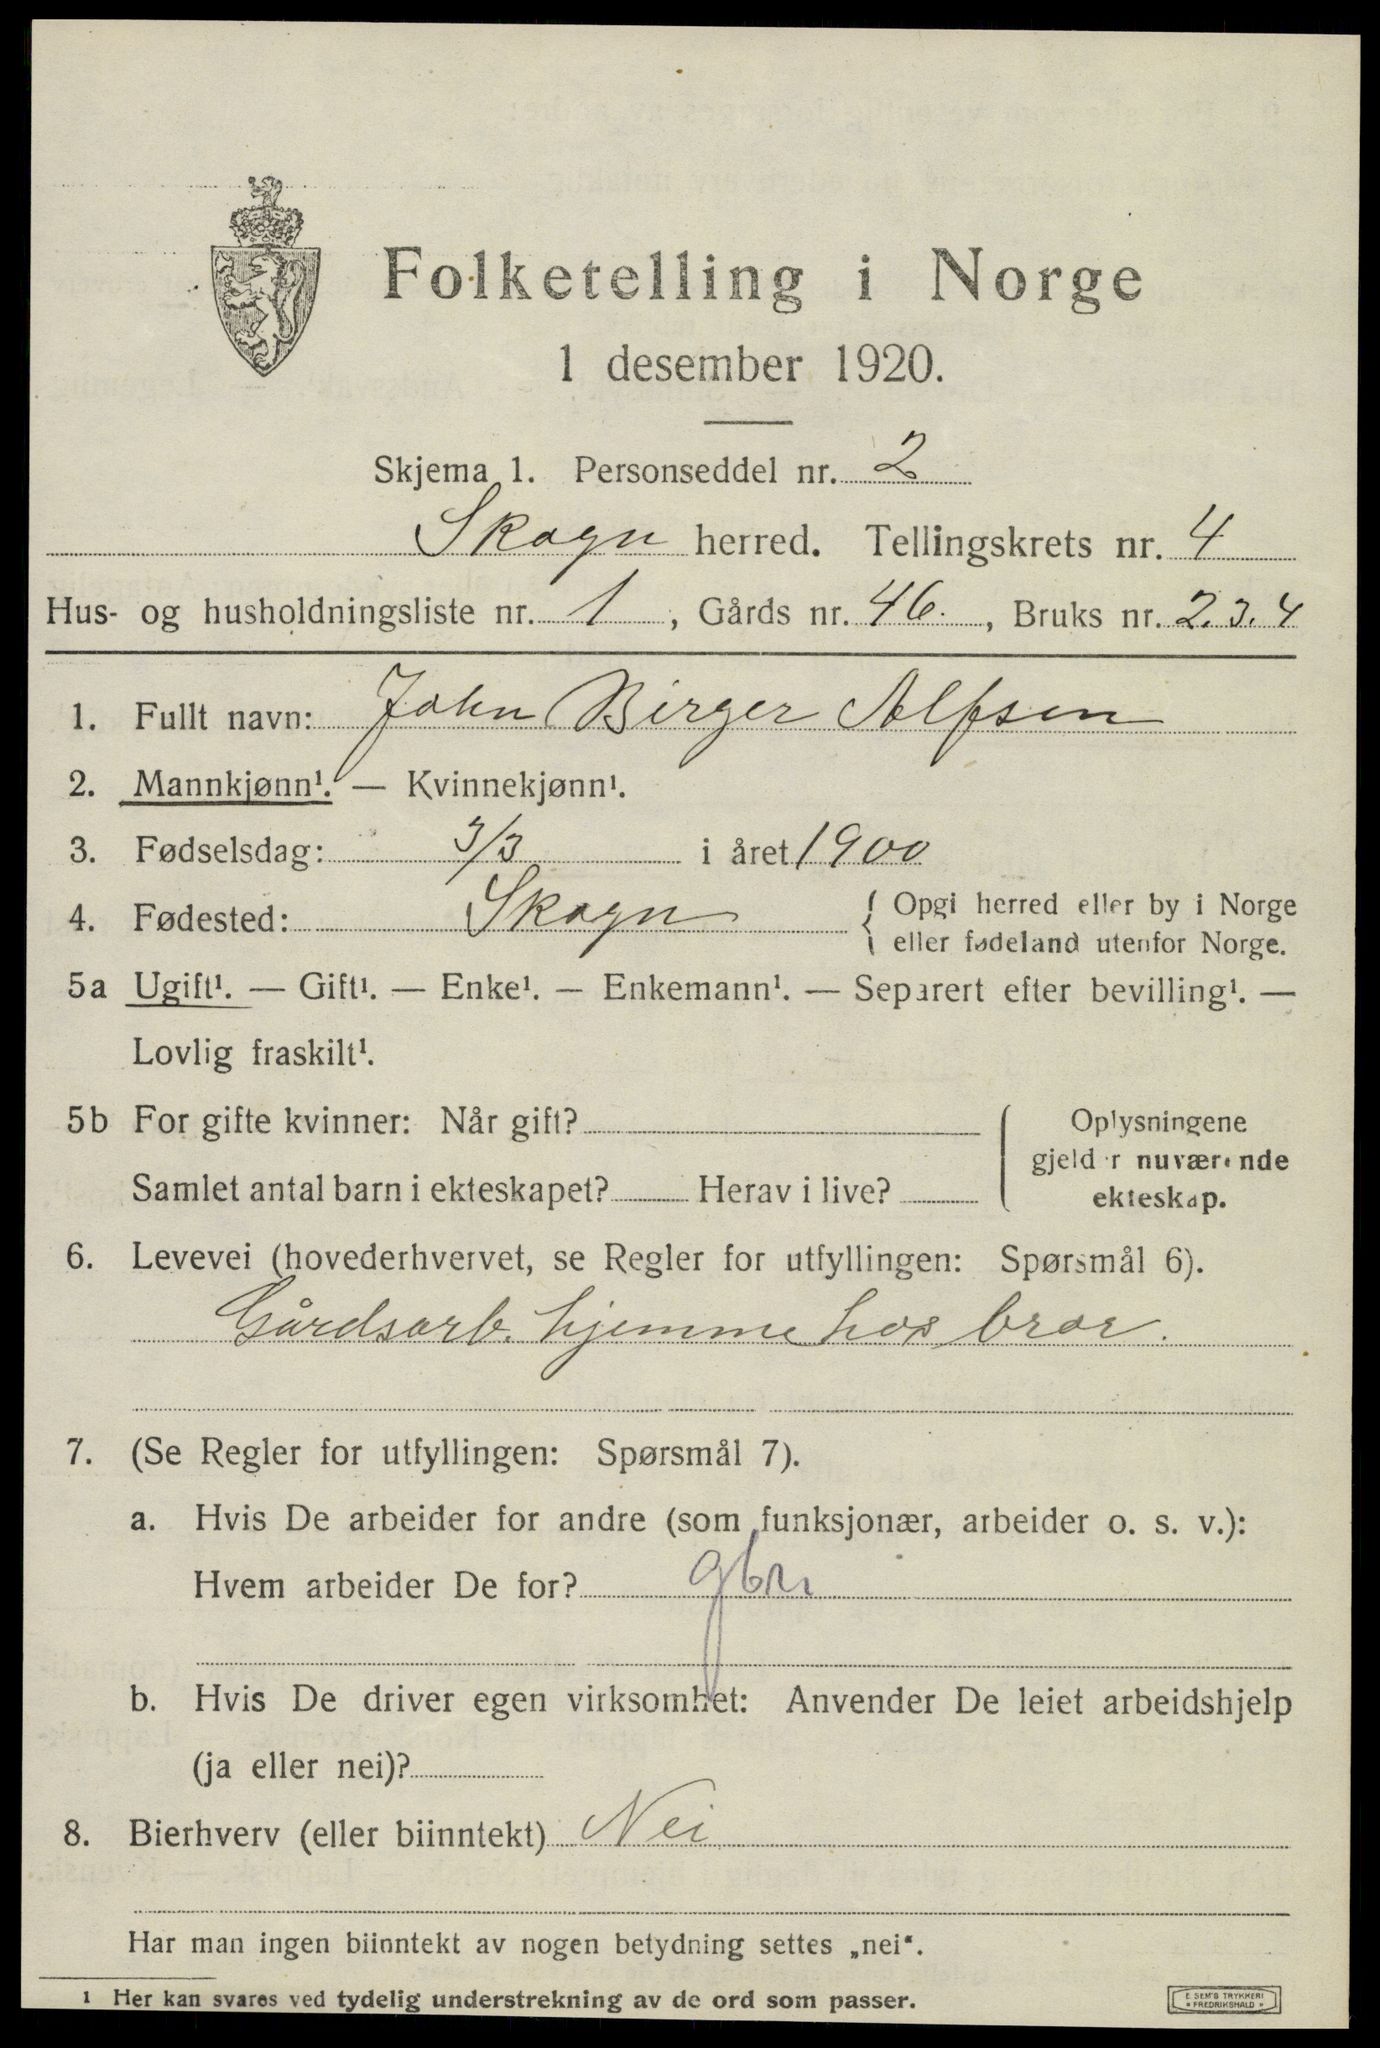 Folketelling i Norge
1 desember 1920.
Skjema 1. Personseddel nr. 2
Skogn herred. Tellingskrets nr. 4
Hus- og husholdningsliste nr. 1, Gårds nr. 46., Bruks nr. 2.3.4
1. Fullt navn: John Birger Alfsen
2. Mannkjønn¹. — Kvinnekjønn¹.
3. Fødselsdag: 3/3 i året 1900
4. Fødested: Skogn { Opgi herred eller by i Norge
eller fødeland utenfor Norge.
5a Ugift¹. — Gift¹. — Enke¹. — Enkemann¹. — Separert efter bevilling¹. —
Lovlig fraskilt¹.
5b For gifte kvinner: Når gift?
Samlet antal barn i ekteskapet? Herav i live?
Oplysningene
gjelder nuværende
ekteskap.
6. Levevei (hovederhvervet, se Regler for utfyllingen: Spørsmål 6).
Gårdsarb. hjemme hos bror.
7. (Se Regler for utfyllingen: Spørsmål 7).
a. Hvis De arbeider for andre (som funksjonær, arbeider o. s. v.):
Hvem arbeider De for? gbr
b. Hvis De driver egen virksomhet: Anvender De leiet arbeidshjelp
(ja eller nei)?
8. Bierhverv (eller biinntekt) Nei
Har man ingen biinntekt av nogen betydning settes „nei“.
1 Her kan svares ved tydelig understrekning av de ord som passer.
E SEM'S TRYKKERI
» FREDRIKSHALD »